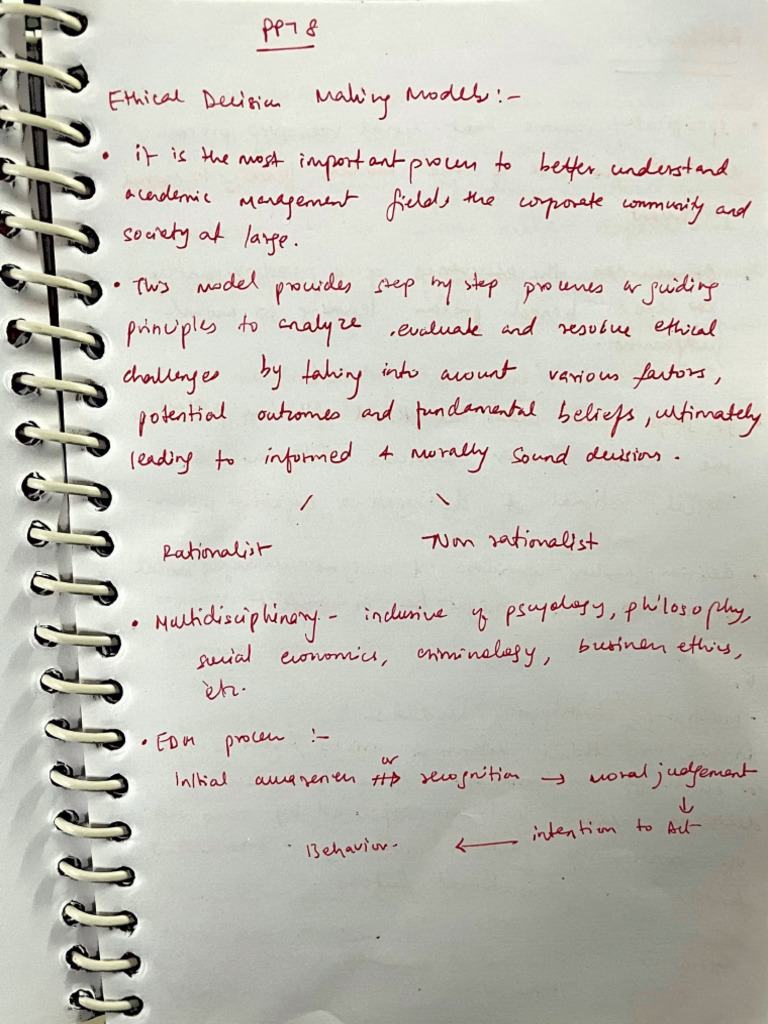 PPT 8
Ethical Decision Making Models :-
• it is the most important process to better understand
academic management fields, the corporate community and
society at large.
• This model provides step by step processes or guiding
principles to analyze, evaluate and resolve ethical
challenges by taking into account various factors,
potential outcomes and fundamental beliefs, ultimately
leading to informed & morally sound decision.
/ \
Rationalist Non rationalist
• Multidisciplinary - inclusive of psycology, philosophy,
social economics, criminology, business ethics,
etc.
• EDM process :-
Initial awareness or recognition → Moral judgement
↓
Behavior. ← intention to Act